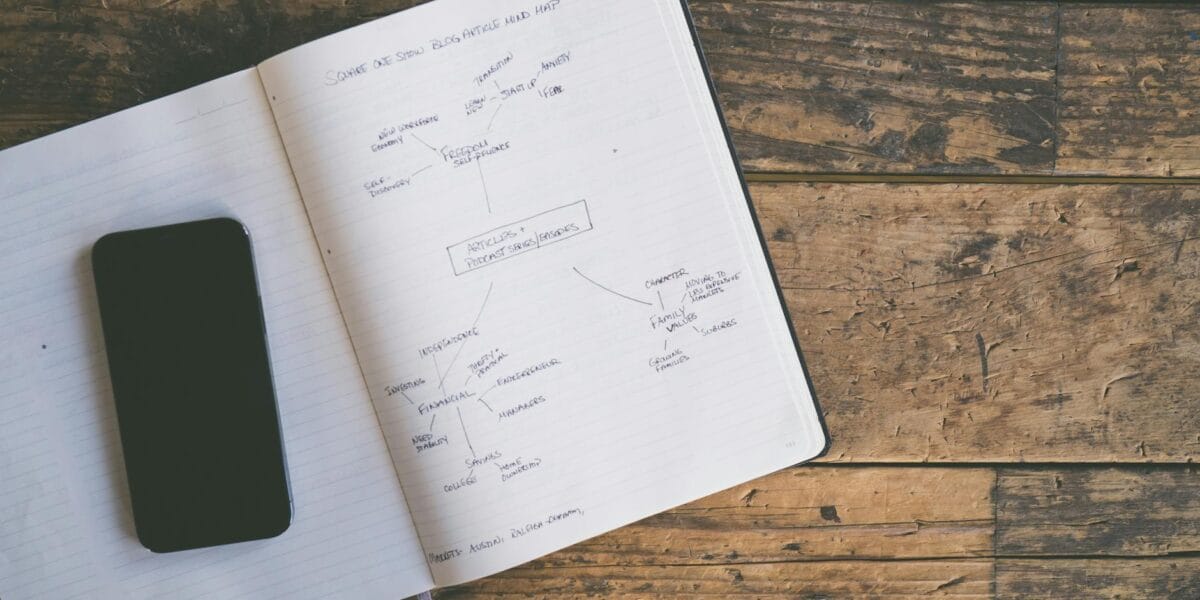 SQUARE ONE SHOW BLOG ARTICLE MIND MAP
TRANSITION
ANXIETY
LEARN
NEW
START UP
FEAR
NEW WORKFORCE
ECONOMY
FREEDOM
SELF-RELIANCE
SELF-
DISCOVERY
ARTICLES +
PODCAST SERIES/EPISODES
CHARACTER
MOVING TO
LESS EXPENSIVE
MARKETS
FAMILY
VALUES
SUBURBS
GROWING
FAMILIES
INDEPENDENCE
THRIFTY +
PRACTICAL
INVESTING
ENTREPRENEUR
FINANCIAL
MANAGERS
NEED
STABILITY
SAVINGS
HOME
OWNERSHIP
COLLEGE
MARKETS- AUSTIN, RALEIGH-DURHAM,